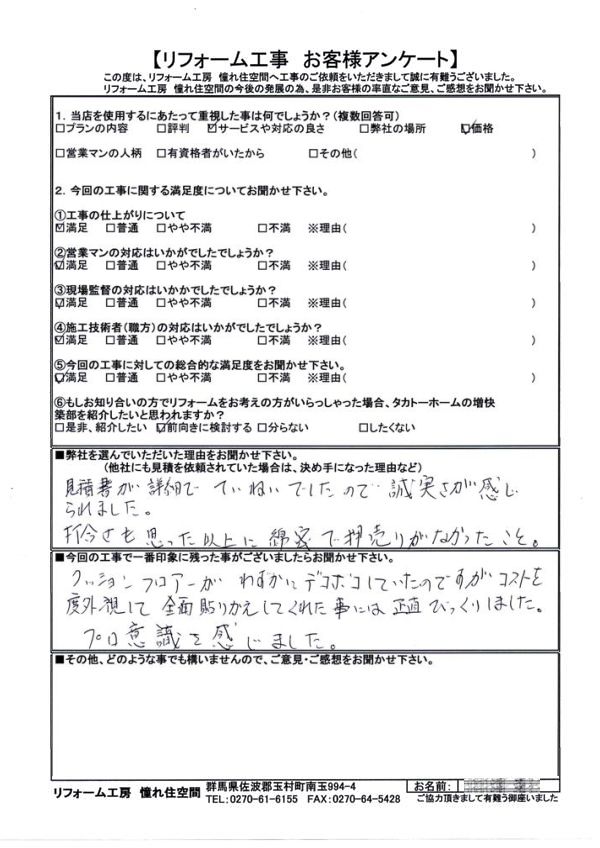 【リフォーム工事　お客様アンケート】
この度は、リフォーム工房　憧れ住空間へ工事のご依頼をいただきまして誠に有難うございました。
リフォーム工房　憧れ住空間の今後の発展の為、是非お客様の率直なご意見、ご感想をお聞かせ下さい。
1．当店を使用するにあたって重視した事は何でしょうか？（複数回答可）
□プランの内容　□評判　☑サービスや対応の良さ　□弊社の場所　☑価格
□営業マンの人柄　□有資格者がいたから　□その他（　）
2．今回の工事に関する満足度についてお聞かせ下さい。
①工事の仕上がりについて
☑満足　□普通　□やや不満　□不満　※理由（　）
②営業マンの対応はいかがでしたでしょうか？
☑満足　□普通　□やや不満　□不満　※理由（　）
③現場監督の対応はいかかでしたでしょうか？
☑満足　□普通　□やや不満　□不満　※理由（　）
④施工技術者（職方）の対応はいかがでしたでしょうか？
☑満足　□普通　□やや不満　□不満　※理由（　）
⑤今回の工事に対しての総合的な満足度をお聞かせ下さい。
☑満足　□普通　□やや不満　□不満　※理由（　）
⑥もしお知り合いの方でリフォームをお考えの方がいらっしゃった場合、タカトーホームの増快
築部を紹介したいと思われますか？
□是非、紹介したい　☑前向きに検討する　□分らない　□したくない
■弊社を選んでいただいた理由をお聞かせ下さい。
（他社にも見積を依頼されていた場合は、決め手になった理由など）
見積書が詳細で ていねいでしたので 誠実さが感じ
られました。
も 思った以上に 綿密で 押売りがなかったこと。
■今回の工事で一番印象に残った事がございましたらお聞かせ下さい。
クッションフロアーが わずかにデコボコしていたのですが コストを
度外視して 全面貼りかえしてくれた事には 正直びっくりしました。
プロ意識を感じました。
■その他、どのような事でも構いませんので、ご意見・ご感想をお聞かせ下さい。
リフォーム工房　憧れ住空間
群馬県佐波郡玉村町南玉994-4
TEL：0270-61-6155　FAX：0270-64-5428
お名前：
ご協力頂きまして有難う御座いました